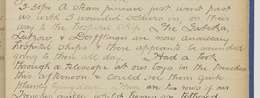 A steam pinnace just went past
us with wounded soldiers in, on their
way to the hospital ship. The Guilia,
Lutzow & Dofflinger are now anchored
hospital ships & there appears to be wounded
going to them all day. Had a look
through a telescope at our boys in the trenches
this afternoon & could see them quite
plainly lying down. There are two pairs of our